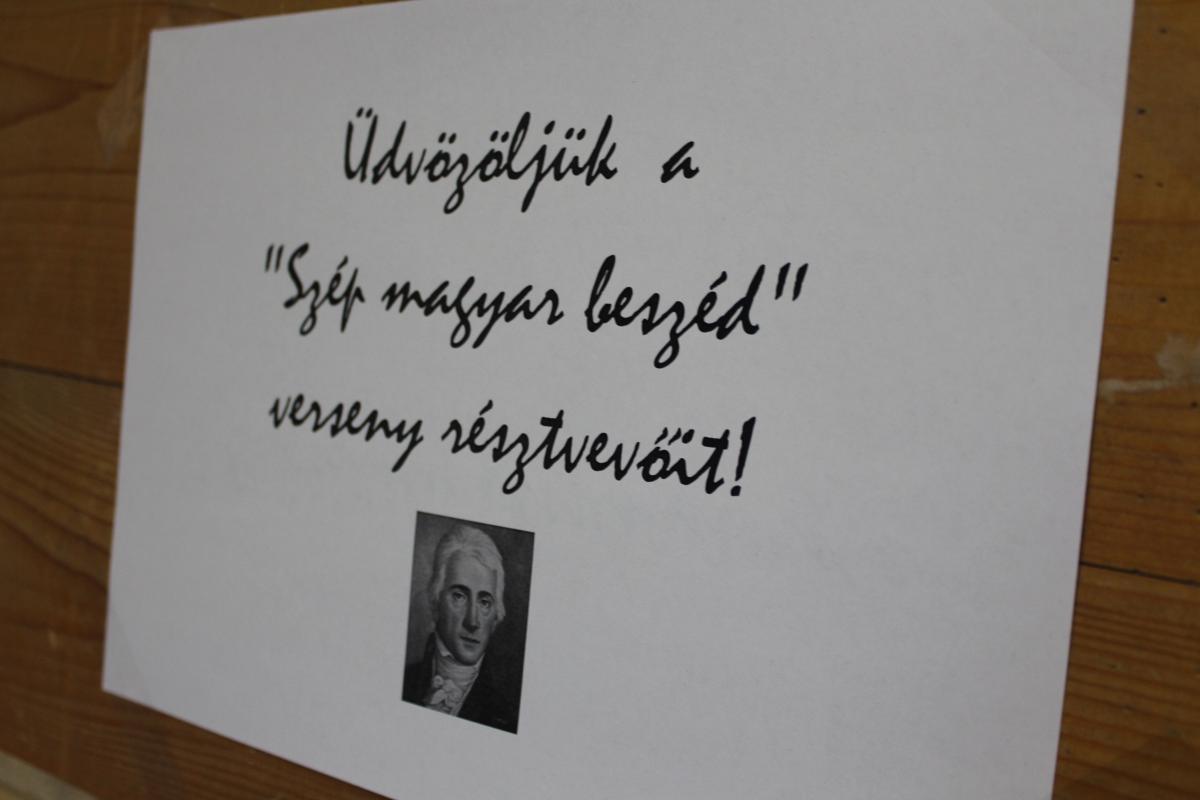 Üdvözöljük a
"Szép magyar beszéd"
verseny résztvevőit!